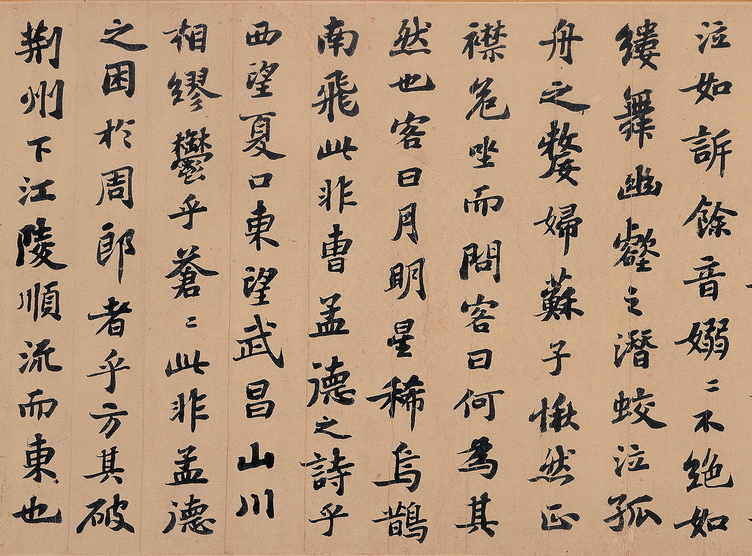 泣如訴餘音嫋〻不絕如
縷舞幽壑之潛蛟泣孤
舟之嫠婦蘇子愀然正
襟危坐而問客曰何為其
然也客曰月明星稀烏鵲
南飛此非曹孟德之詩乎
西望夏口東望武昌山川
相繆鬱乎蒼〻此非孟德
之困於周郎者乎方其破
荊州下江陵順流而東也